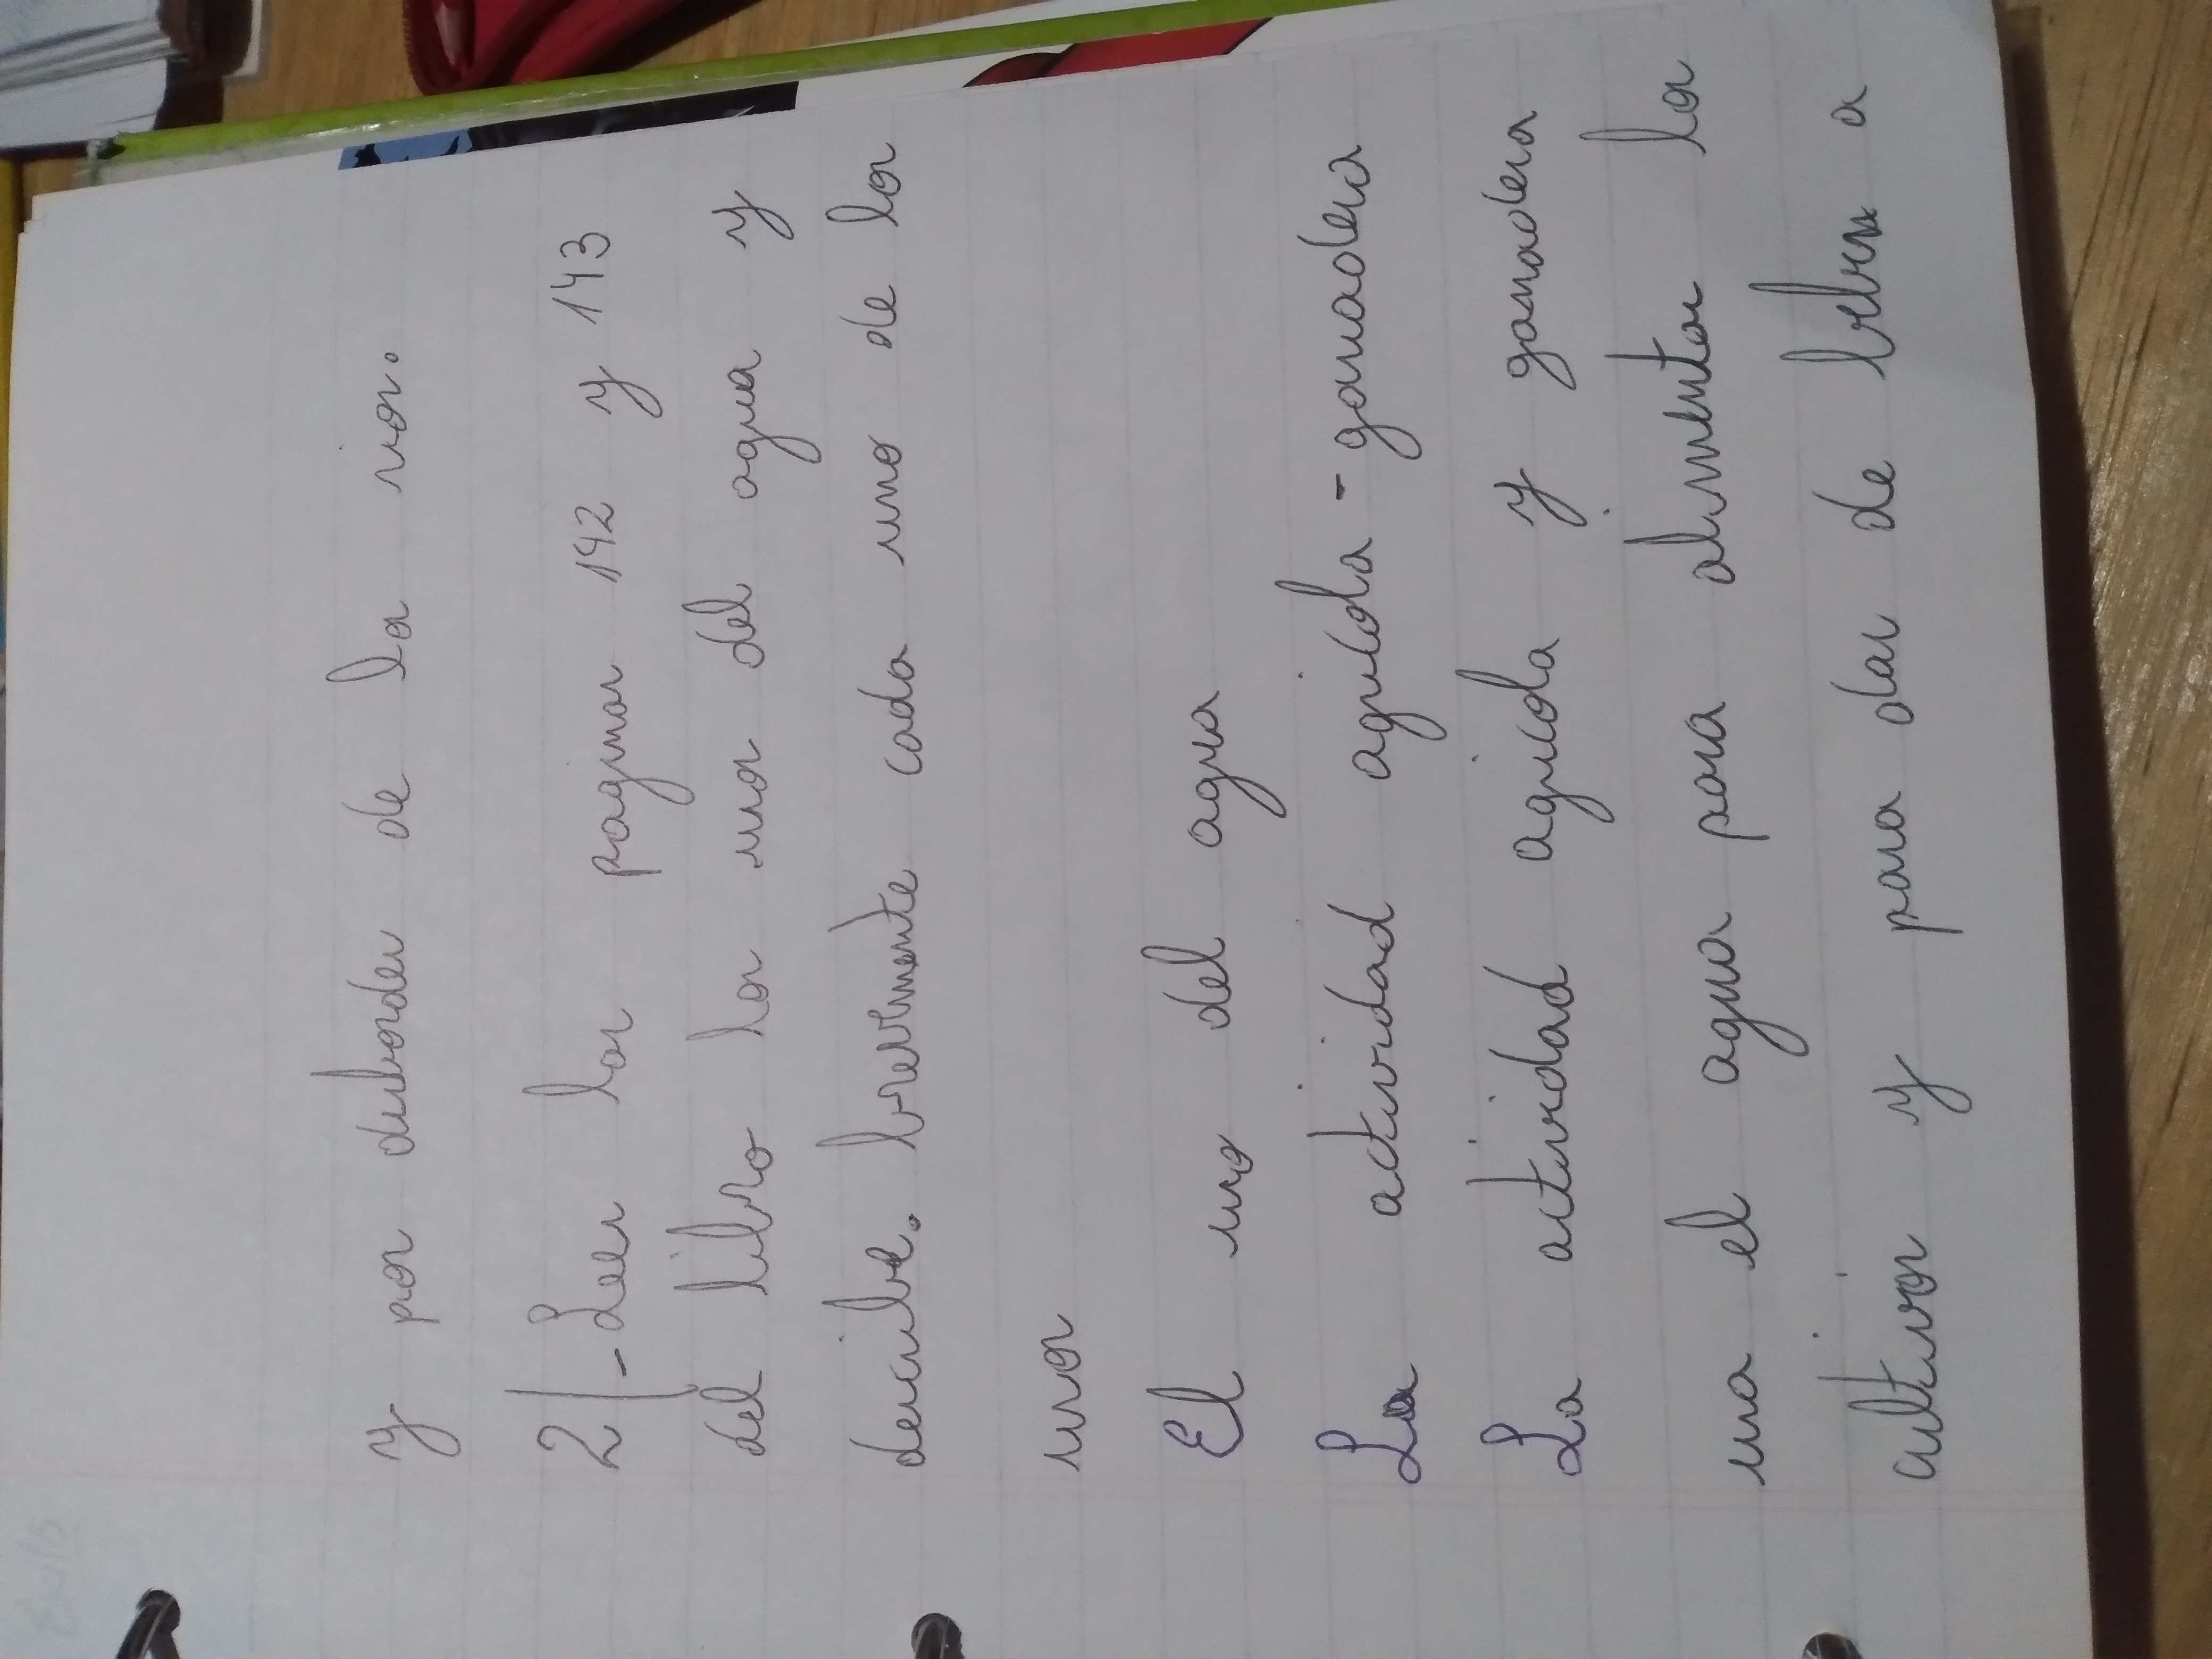 y por desborder de los rios.
2)-Leer las paginas 142 y 143
del libro los usos del agua y
describe. brevemente cada uno de los
usos
El uso del agua
La actividad agricola-ganadera
La actividad agricola y ganadera
usa el agua para alimentar los
cultivos y para dar de beber a